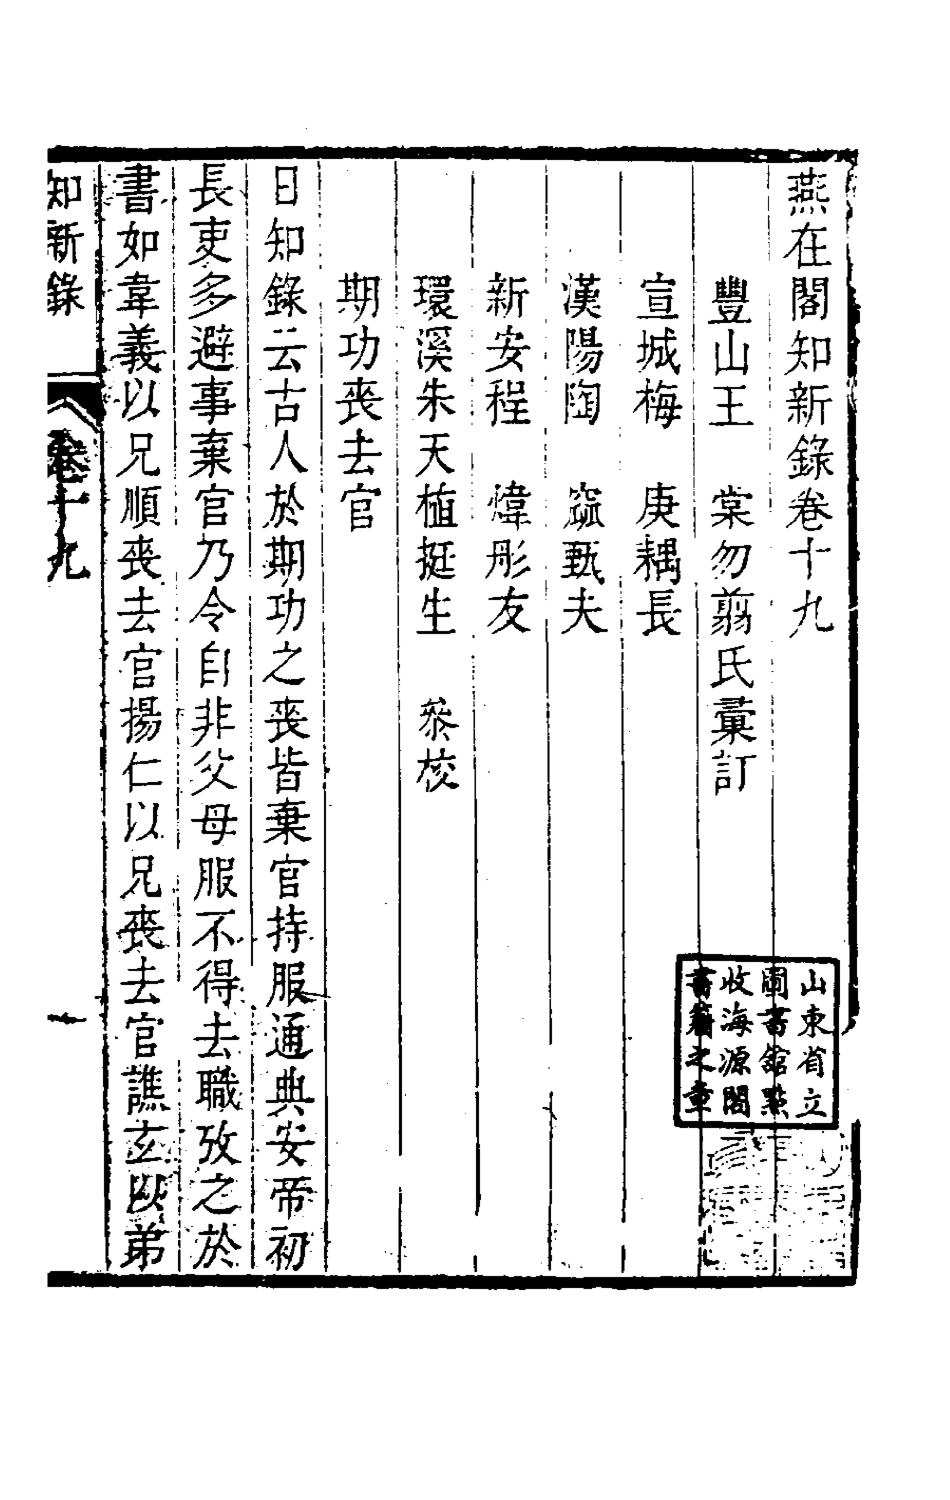 燕在閣知新錄卷十九
豐山王　棠勿翦氏彙訂
宣城梅　庚耦長
漢陽陶　窳甄夫
新安程　煒彤友
環溪朱天植挺生　叅校
期功喪去官
日知錄云古人於期功之喪皆棄官持服通典安帝初
長吏多避事棄官乃令自非父母服不得去職攷之於
書如韋義以兄順喪去官揚仁以兄喪去官譙玄以弟
知新錄
卷十九
一
山東省立
圖書館點
收海源閣
書籍之章